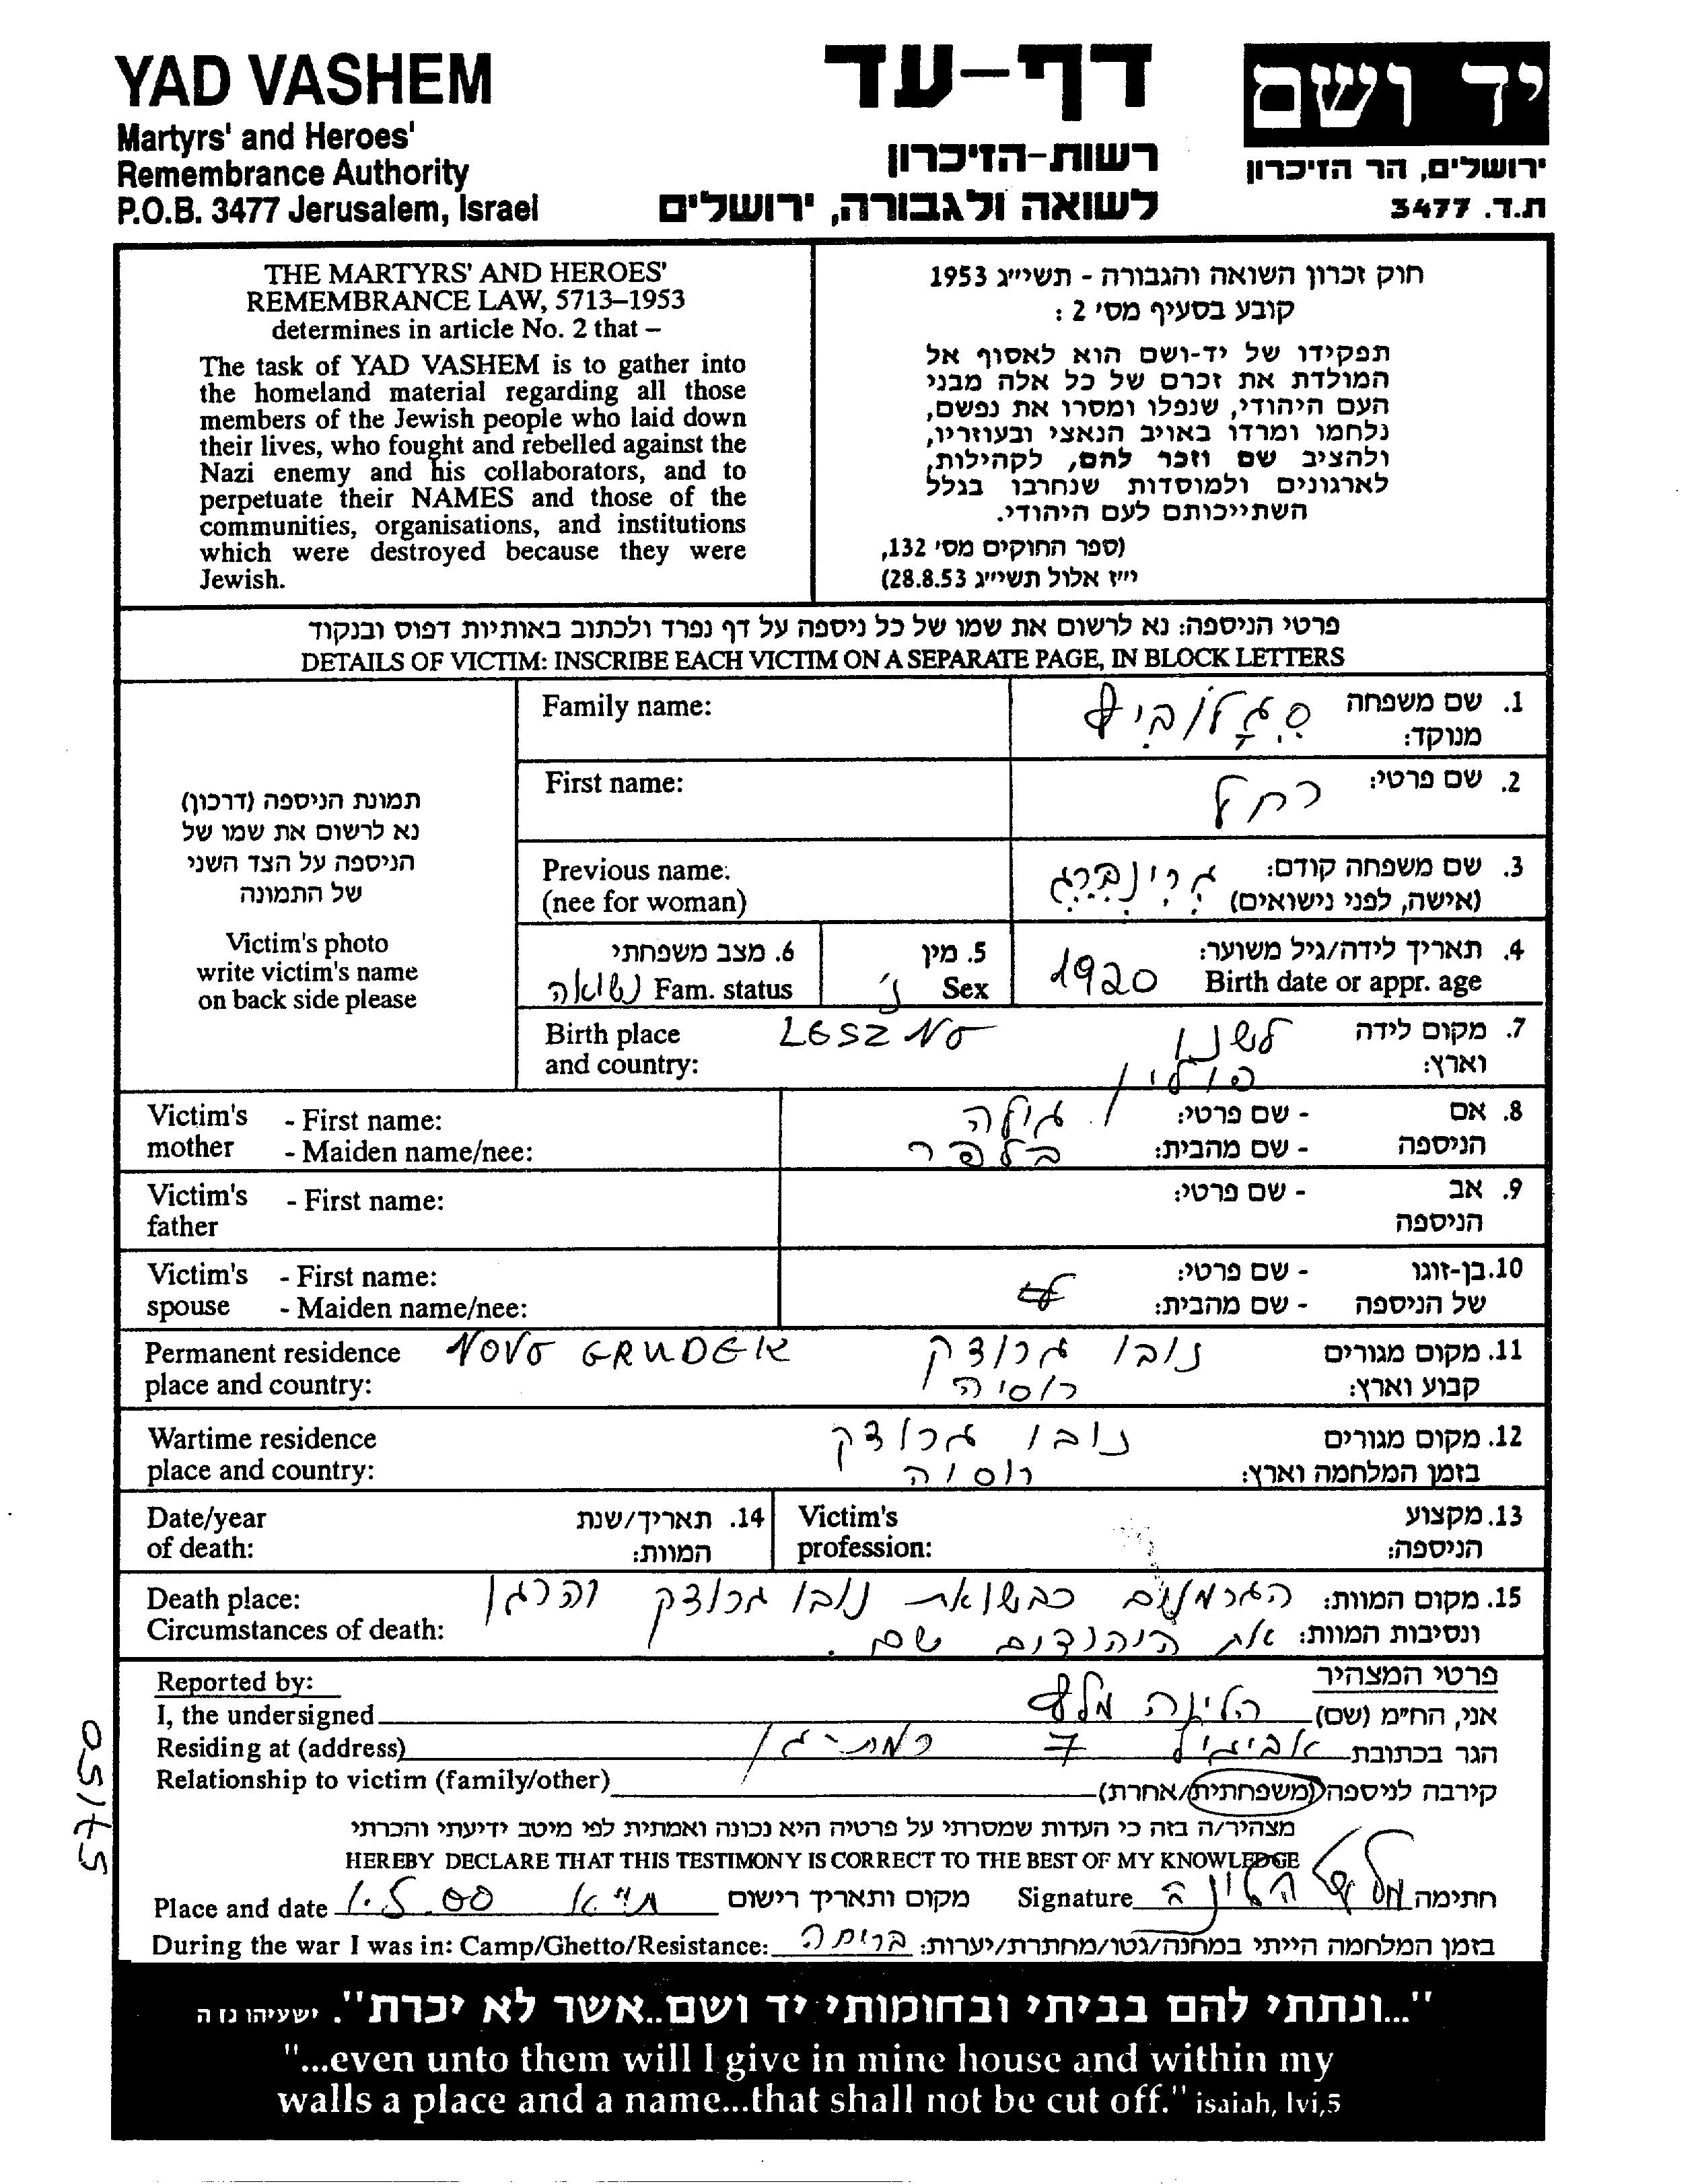 YAD VASHEM
Martyrs' and Heroes'
Remembrance Authority
P.O.B. 3477 Jerusalem, Israel
דף-עד
רשות-הזיכרון
לשואה ולגבורה, ירושלים
יד ושם
ירושלים, הר הזיכרון
ת.ד. 3477
THE MARTYRS' AND HEROES'
REMEMBRANCE LAW, 5713–1953
determines in article No. 2 that –
The task of YAD VASHEM is to gather into
the homeland material regarding all those
members of the Jewish people who laid down
their lives, who fought and rebelled against the
Nazi enemy and his collaborators, and to
perpetuate their NAMES and those of the
communities, organisations, and institutions
which were destroyed because they were
Jewish.
חוק זכרון השואה והגבורה - תשי״ג 1953
קובע בסעיף מס׳ 2 :
תפקידו של יד-ושם הוא לאסוף אל
המולדת את זכרם של כל אלה מבני
העם היהודי, שנפלו ומסרו את נפשם,
נלחמו ומרדו באויב הנאצי ובעוזריו,
ולהציב שם וזכר להם, לקהילות,
לארגונים ולמוסדות שנחרבו בגלל
השתייכותם לעם היהודי.
(ספר החוקים מס׳ 132,
י״ז אלול תשי״ג 28.8.53)
פרטי הניספה: נא לרשום את שמו של כל ניספה על דף נפרד ולכתוב באותיות דפוס ובנקוד
DETAILS OF VICTIM: INSCRIBE EACH VICTIM ON A SEPARATE PAGE, IN BLOCK LETTERS
תמונת הניספה (דרכון)
נא לרשום את שמו של
הניספה על הצד השני
של התמונה
Victim's photo
write victim's name
on back side please
Family name: 1. שם משפחה
מנוקד:
First name: רחל 2. שם פרטי:
Previous name: גרינברג 3. שם משפחה קודם:
(nee for woman) (אישה, לפני נישואים)
6. מצב משפחתי 5. מין 4. תאריך לידה/גיל משוער:
Fam. status נשואה Sex נ׳ 1920 Birth date or appr. age
Birth place LESZNO לשנו 7. מקום לידה
and country: פולין וארץ:
Victim's - First name: גולה - שם פרטי: 8. אם
mother - Maiden name/nee: בלפר - שם מהבית: הניספה
Victim's - First name: - שם פרטי: 9. אב
father הניספה
Victim's - First name: - שם פרטי: 10. בן-זוגו
spouse - Maiden name/nee: - שם מהבית: של הניספה
Permanent residence NOVO GRUDEK נובו גרודק 11. מקום מגורים
place and country: רוסיה קבוע וארץ:
Wartime residence נובו גרודק 12. מקום מגורים
place and country: רוסיה בזמן המלחמה וארץ:
Date/year 14. תאריך/שנת Victim's 13. מקצוע
of death: המוות: profession: הניספה:
Death place: 15. מקום המוות: הגרמנים כבשו את נובו גרודק והרגו
Circumstances of death: ונסיבות המוות: את היהודים שם.
Reported by: פרטי המצהיר
I, the undersigned אני, החי״מ (שם) הלינה
Residing at (address) הגר בכתובת אביגיל 7 רמת-גן
Relationship to victim (family/other) קירבה לניספה (משפחתית/אחרת)
מצהיר/ה בזה כי העדות שמסרתי על פרטיה היא נכונה ואמתית לפי מיטב ידיעתי והכרתי
HEREBY DECLARE THAT THIS TESTIMONY IS CORRECT TO THE BEST OF MY KNOWLEDGE
Place and date 1.5.00 ת״א מקום ותאריך רישום Signature הלינה חתימה
During the war I was in: Camp/Ghetto/Resistance: בזמן המלחמה הייתי במחנה/גטו/מחתרת/יערות:
"...ונתתי להם בביתי ובחומותי יד ושם..אשר לא יכרת". ישעיהו נו ה
"...even unto them will I give in mine house and within my
walls a place and a name...that shall not be cut off." isaiah, lvi,5